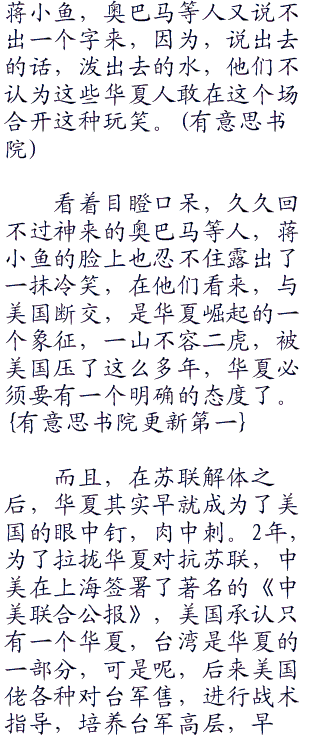 蒋小鱼，奥巴马等人又说不
出一个字来，因为，说出去
的话，泼出去的水，他们不
认为这些华夏人敢在这个场
合开这种玩笑。(有意思书
院)
看着目瞪口呆，久久回
不过神来的奥巴马等人，蒋
小鱼的脸上也忍不住露出了
一抹冷笑，在他们看来，与
美国断交，是华夏崛起的一
个象征，一山不容二虎，被
美国压了这么多年，华夏必
须要有一个明确的态度了。
{有意思书院更新第一}
而且，在苏联解体之
后，华夏其实早就成为了美
国的眼中钉，肉中刺。2年，
为了拉拢华夏对抗苏联，中
美在上海签署了著名的《中
美联合公报》，美国承认只
有一个华夏，台湾是华夏的
一部分，可是呢，后来美国
佬各种对台军售，进行战术
指导，培养台军高层，早